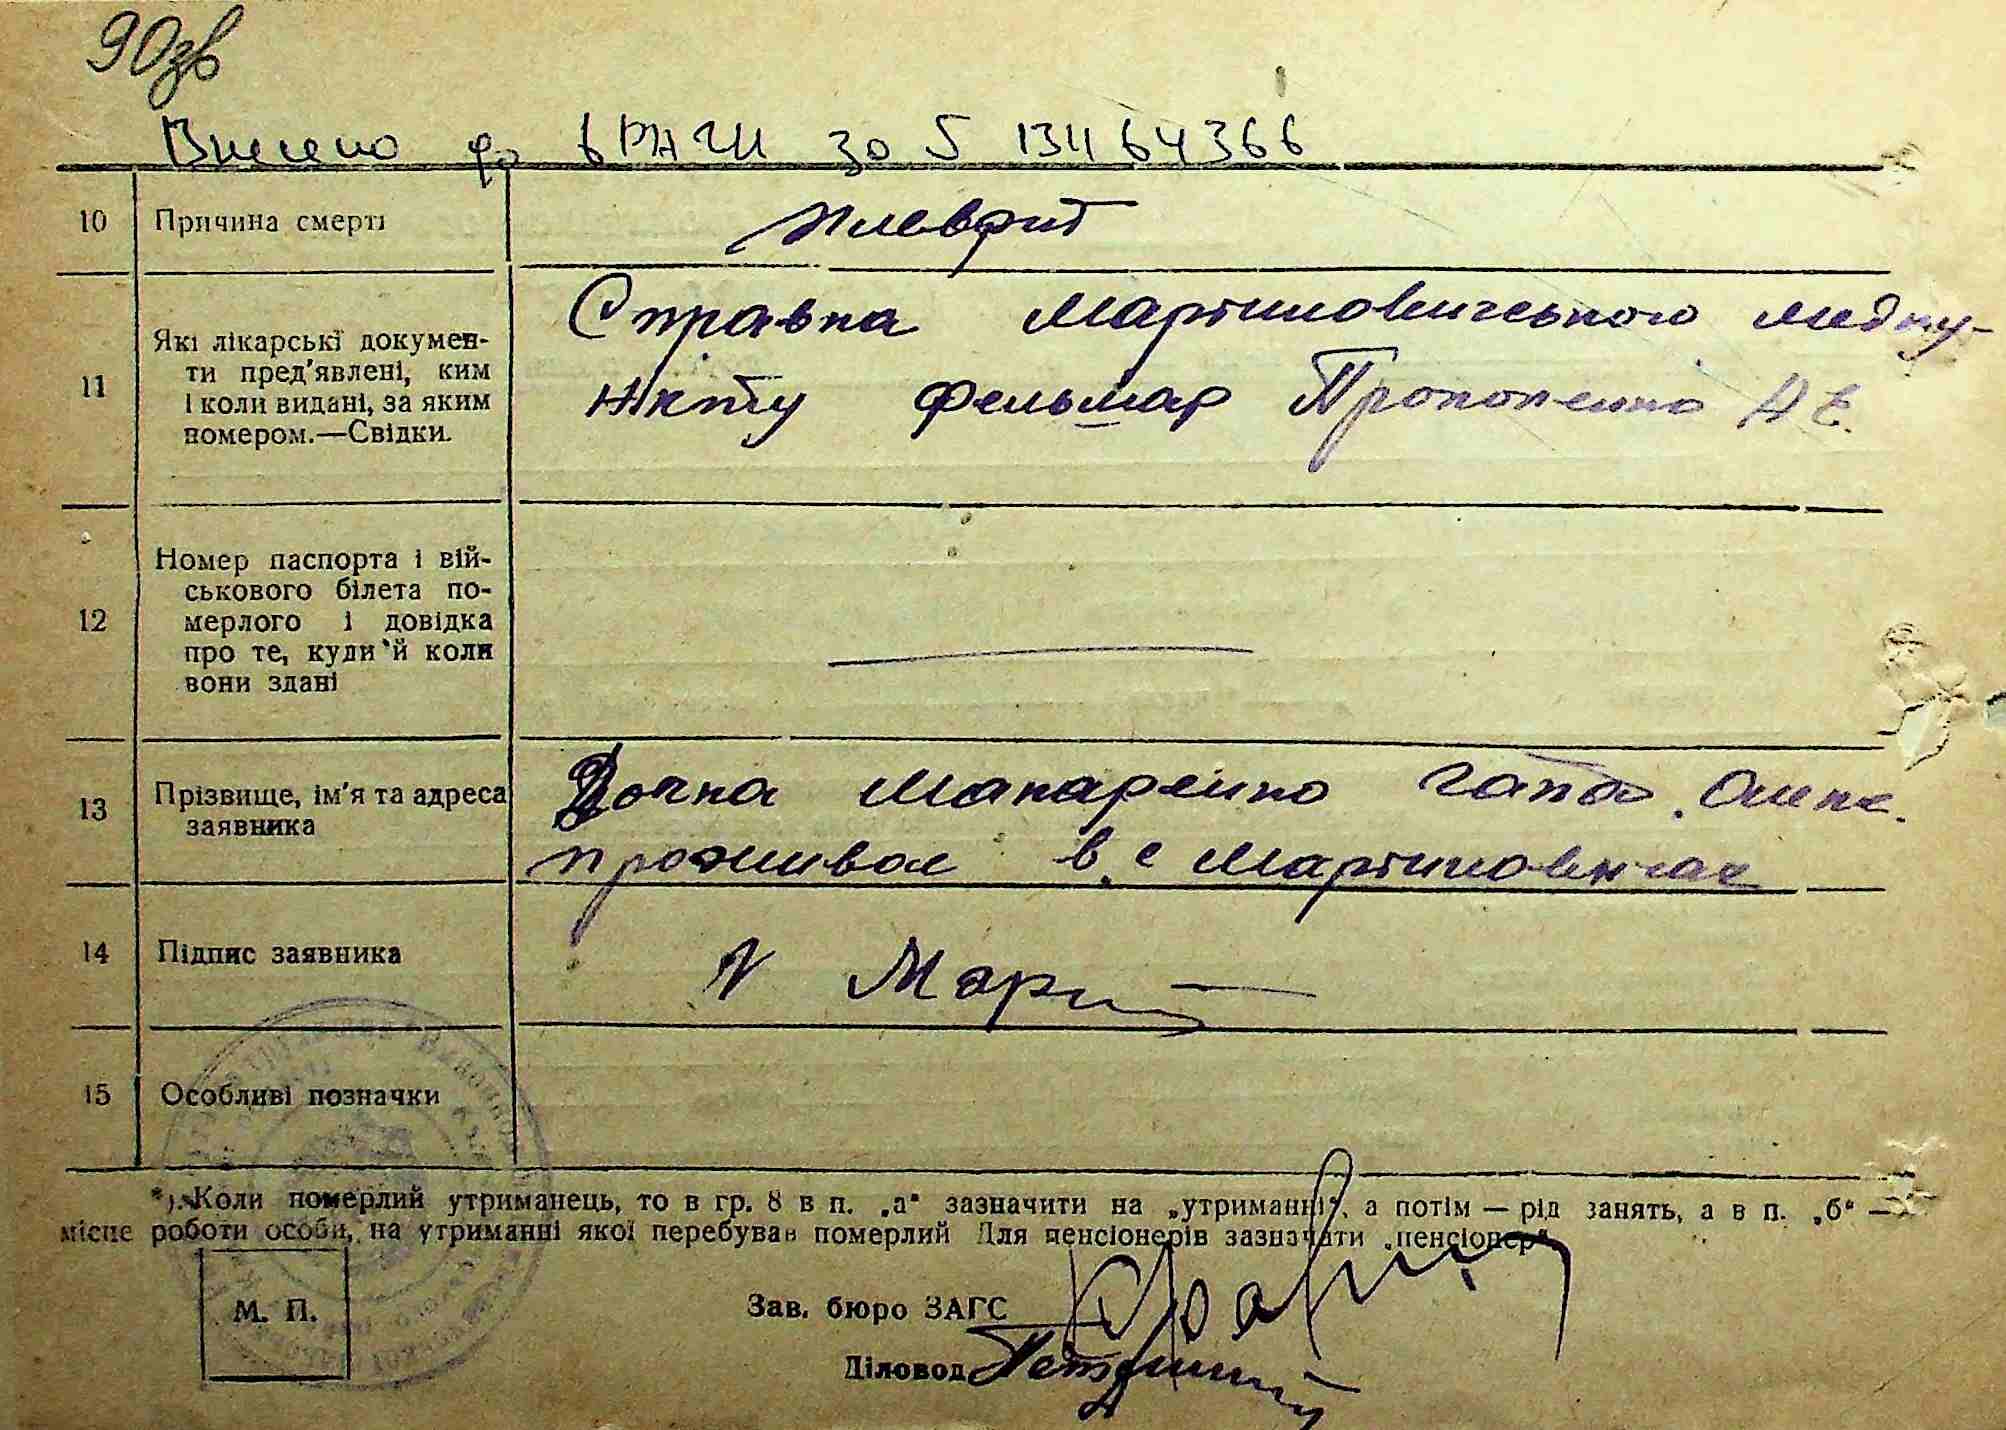 90зв
Внесено до ДРАЦСГ за № 13464366
10 Причина смерті Плеврит
11 Які лікарські докумен-
ти пред'явлені, ким
і коли видані, за яким
номером.—Свідки.
Справка Мартиновичського медпу-
нкту фельшар Прокопенко
12 Номер паспорта і вій-
ськового білета по-
мерлого і довідка
про те, куди й коли
вони здані
13 Прізвище, ім'я та адреса
заявника
Дочка Макаренко Гапа
проживає в с Мартиновичах
14 Підпис заявника
15 Особливі позначки
*) Коли померлий утриманець, то в гр. 8 в п. „а" зазначити на „утриманні", а потім — рід занять, а в п. „б" —
місце роботи особи, на утриманні якої перебував померлий Для пенсіонерів зазначати „пенсіонер".
М. П.
Зав. бюро ЗАГС
Діловод